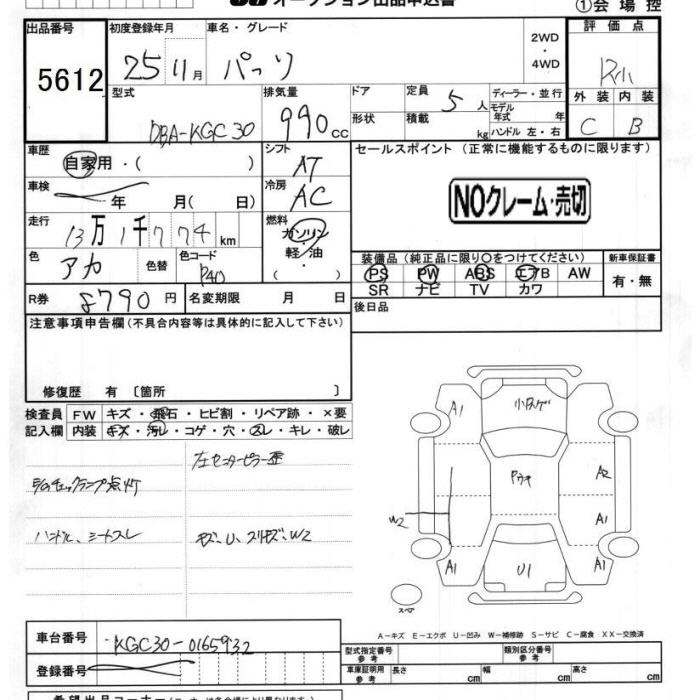 JU オークション出品申込書 ①会場控
出品番号 初度登録年月 車名・グレード 2WD・4WD 評価点
5612 25 11月 パッソ R小
型式 排気量 ドア 定員 5人 ディーラー・並行 外装 内装
DBA-KGC30 990cc 形状 積載 kg モデル年式 年 ハンドル 左・右 C B
車歴 自家用・( ) シフト AT セールスポイント (正常に機能するものに限ります)
車検 年 月( 日) 冷房 AC NOクレーム・売切
走行 13万1千774km 燃料 ガソリン・軽・油( )
色 アカ 色替 色コード R40 装備品(純正品に限り○をつけてください) 新車保証書
PS PW ABS エアB AW 有・無
SR ナビ TV カワ
R券 8790円 名変期限 月 日 後日品
注意事項申告欄(不具合内容等は具体的に記入して下さい)
修復歴 有〔箇所 〕
検査員 FW キズ・飛石・ヒビ割・リペア跡・×要
記入欄 内装 キズ・汚レ・コゲ・穴・スレ・キレ・破レ
左センターピラー歪
チェックランプ点灯
ハンドル、シートスレ キズ、U、スリキズ、W2
A1 小キズ
Pウキ A2
W2 A1
A1 U1 A1
スペア
A-キズ E-エクボ U-凹み W-補修跡 S-サビ C-腐食 XX-交換済
車台番号 KGC30-0165932 型式指定番号 参考 類別区分番号 参考
登録番号 車庫証明用 参考 長さ cm 幅 cm 高さ cm
希望出品コーナー